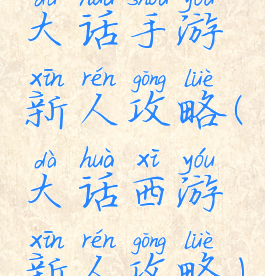 dà huà shǒu yóu
大话手游
xīn rén gōng lüè
新人攻略(
dà huà xī yóu
大话西游
xīn rén gōng lüè
新人攻略)